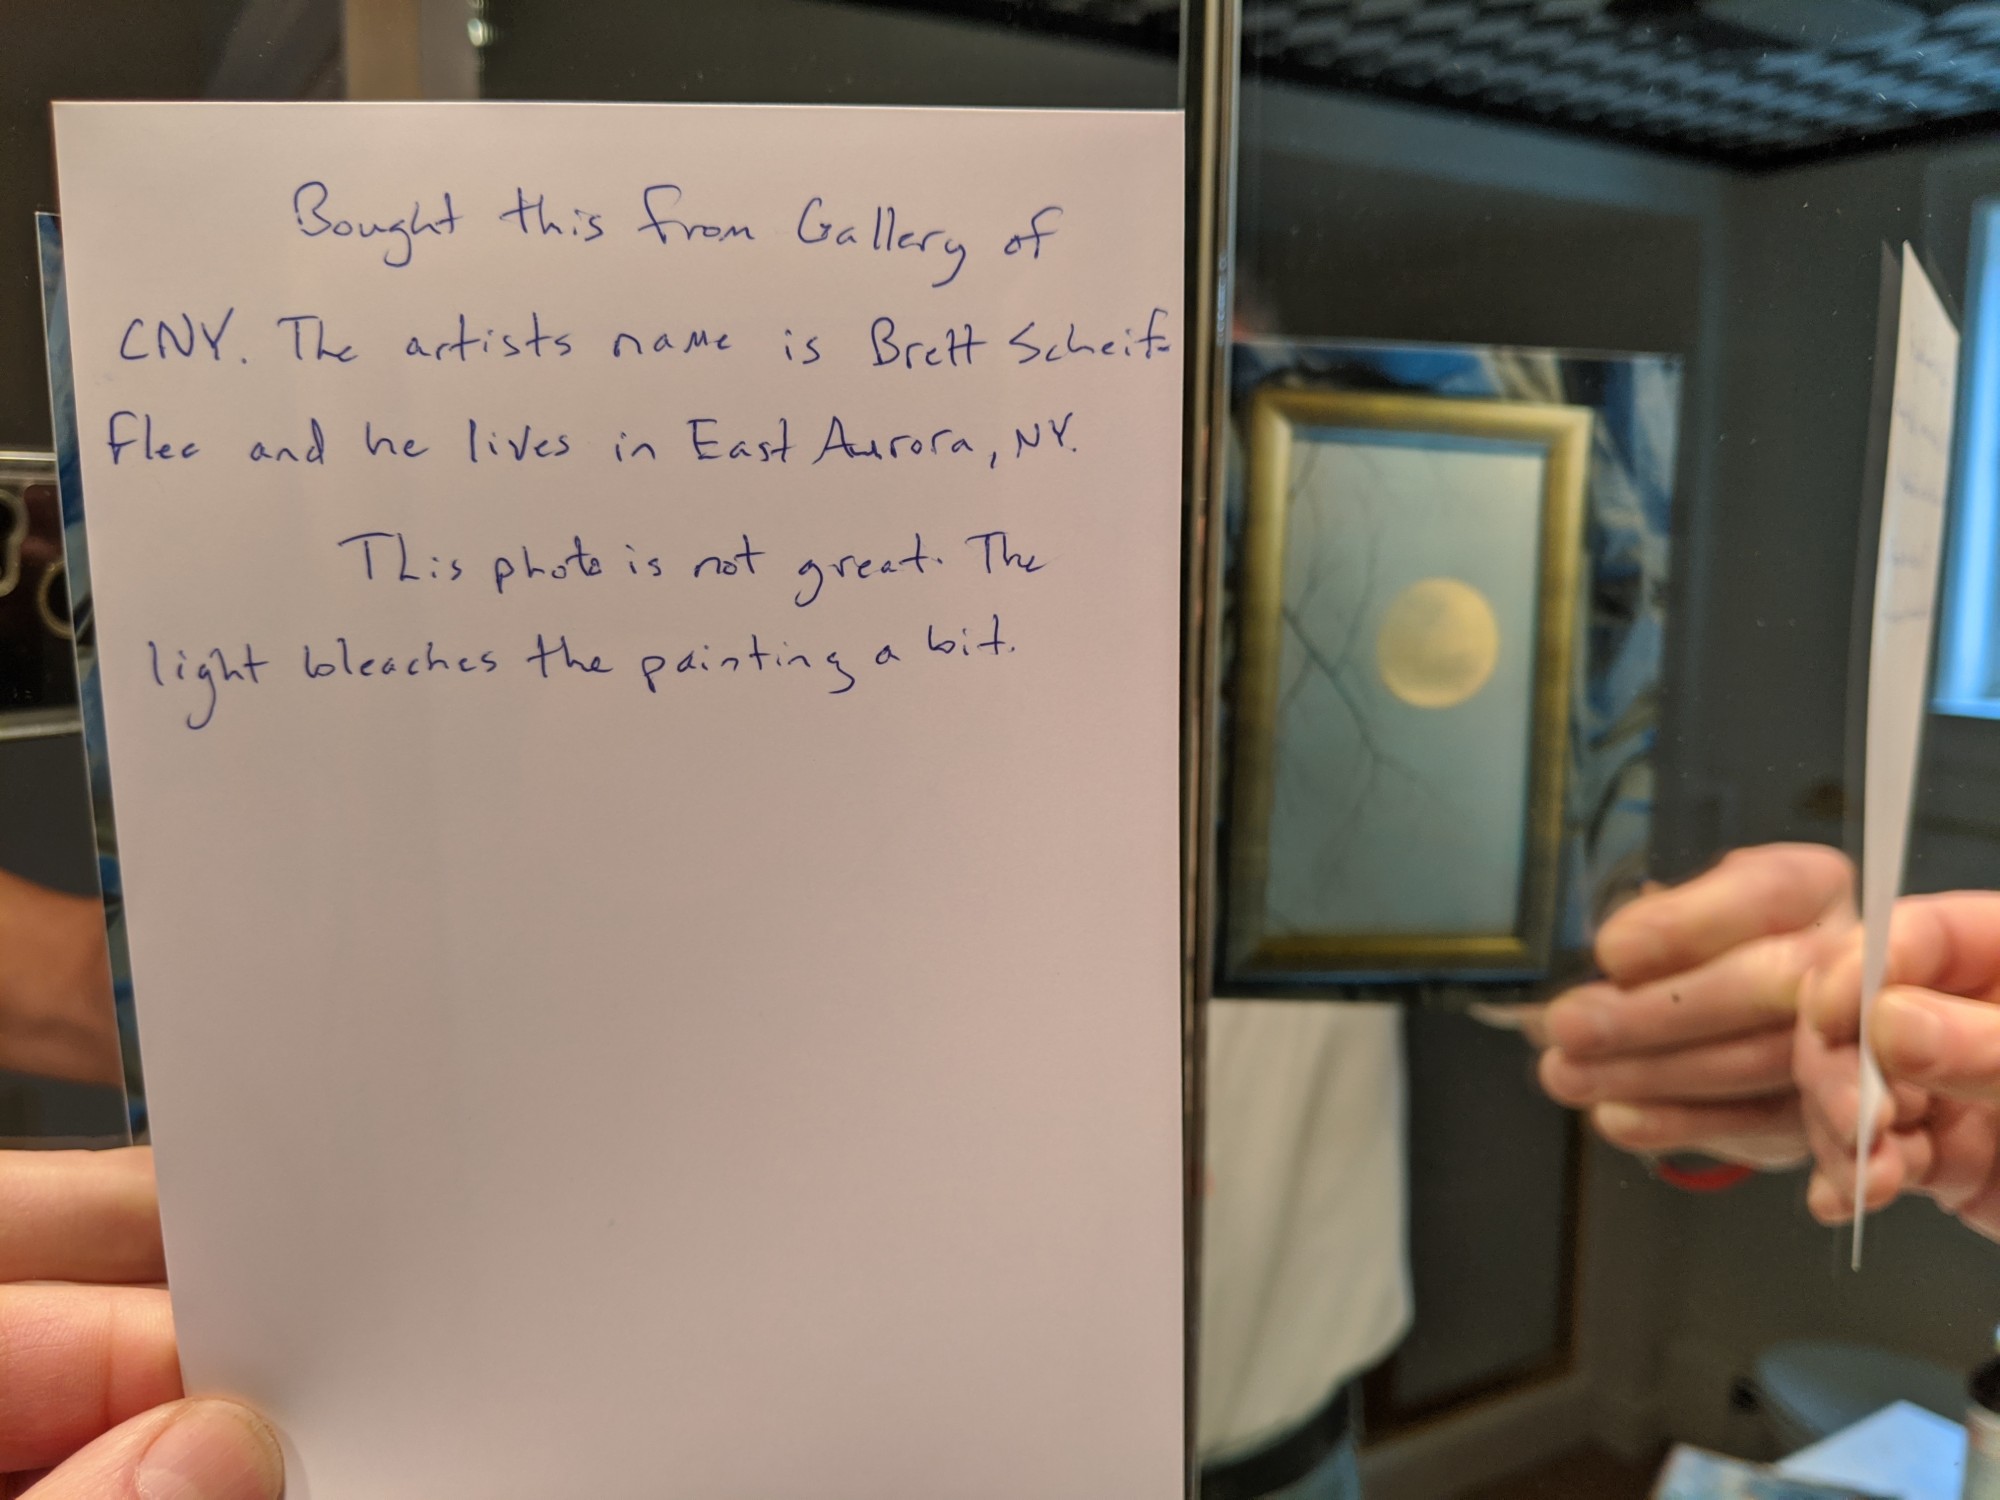 Bought this from Gallery of
CNY. The artists name is Brett Scheif-
flee and he lives in East Aurora, NY.
This photo is not great. The
light bleaches the painting a bit.